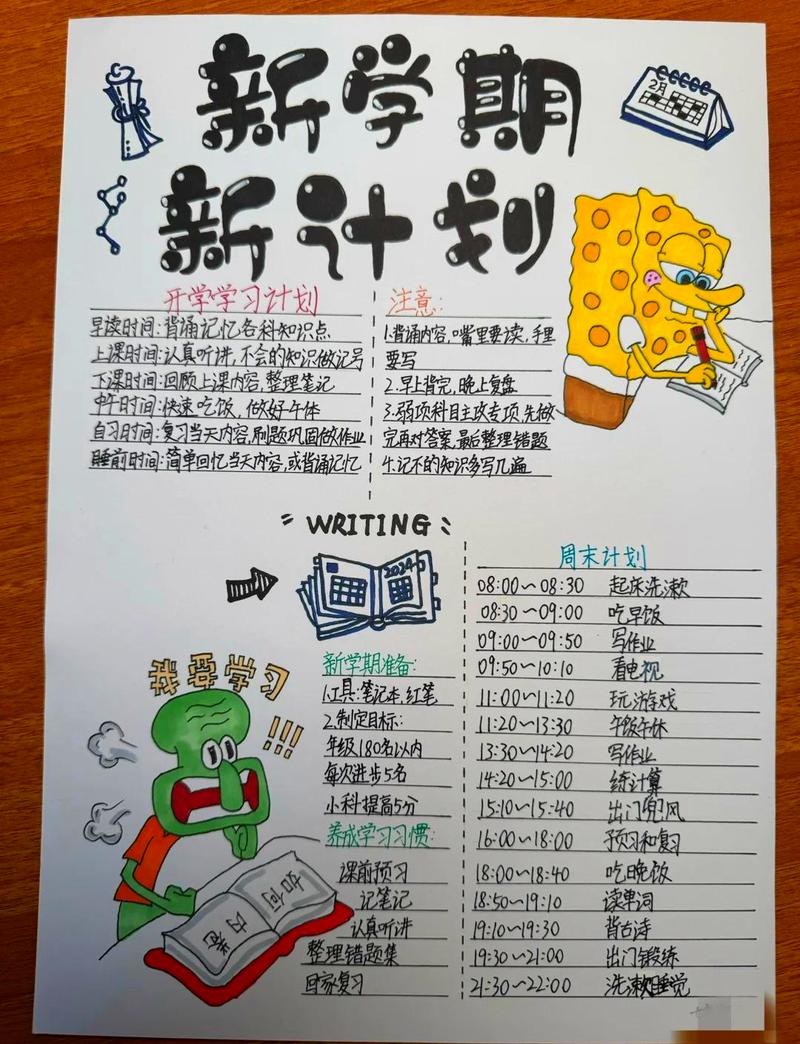 新学期
新计划
2月
开学学习计划
早读时间:背诵记忆各科知识点
上课时间:认真听讲,不会的知识做记号
下课时间:回顾上课内容,整理笔记
中午时间:快速吃饭,做好午休
自习时间:复习当天内容,刷题巩固做作业
睡前时间:简单回忆当天内容,或背诵记忆
注意:
1.背诵内容,嘴里要读,手里
要写
2.早上背完,晚上复盘
3.弱项科目主攻专项,先做
完再对答案,最后整理错题
4.记不的知识多写几遍
WRITING
2024
我要学习
!!!
如何
内卷
新学期准备:
1.工具:笔记本,红笔
2.制定目标:
年级180名以内
每次进步5名
小科提高5分
养成学习习惯:
课前预习
记笔记
认真听讲
整理错题集
回家复习
周末计划
08:00~08:30 起床洗漱
08:30~09:00 吃早饭
09:00~09:50 写作业
09:50~10:10 看电视
11:00~11:20 玩游戏
11:20~13:30 午饭午休
13:30~14:20 写作业
14:20~15:00 练计算
15:10~15:40 出门兜风
16:00~18:00 预习和复习
18:00~18:40 吃晚饭
18:50~19:10 读单词
19:10~19:30 背古诗
19:30~21:00 出门锻练
21:30~22:00 洗漱睡觉